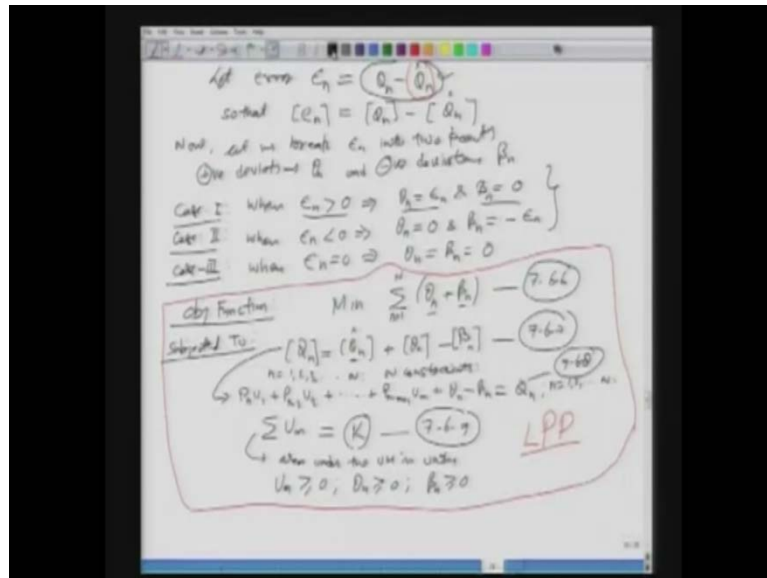 Let error Є_n = Q_n - Q̂_n
so that [Є_n] = [Q_n] - [Q̂_n]
Now, let us break Є_n into two parts
⊕ve deviations θ_n and ⊖ve deviations β_n
Case I: when Є_n > 0 ⇒ θ_n = Є_n & β_n = 0
Case II: when Є_n < 0 ⇒ θ_n = 0 & β_n = - Є_n
Case-III: when Є_n = 0 ⇒ θ_n = β_n = 0
Obj Function: Min Σ_{n=1}^{N} (θ_n + β_n) — 7.6.6
Subjected To: [Q_n] = [Q̂_n] + [θ_n] - [β_n] — 7.6.7
n = 1, 2, 3, ... N: N constraints.
→ P_n U_1 + P_{n-1} U_2 + ... + P_{n-m+1} U_m + θ_n - β_n = Q_n, n = 1, 2, ... N. 7.6.8
Σ U_m = K — 7.6.9
LPP
→ area under the UH is unity
U_m ≥ 0; θ_n ≥ 0; β_n ≥ 0